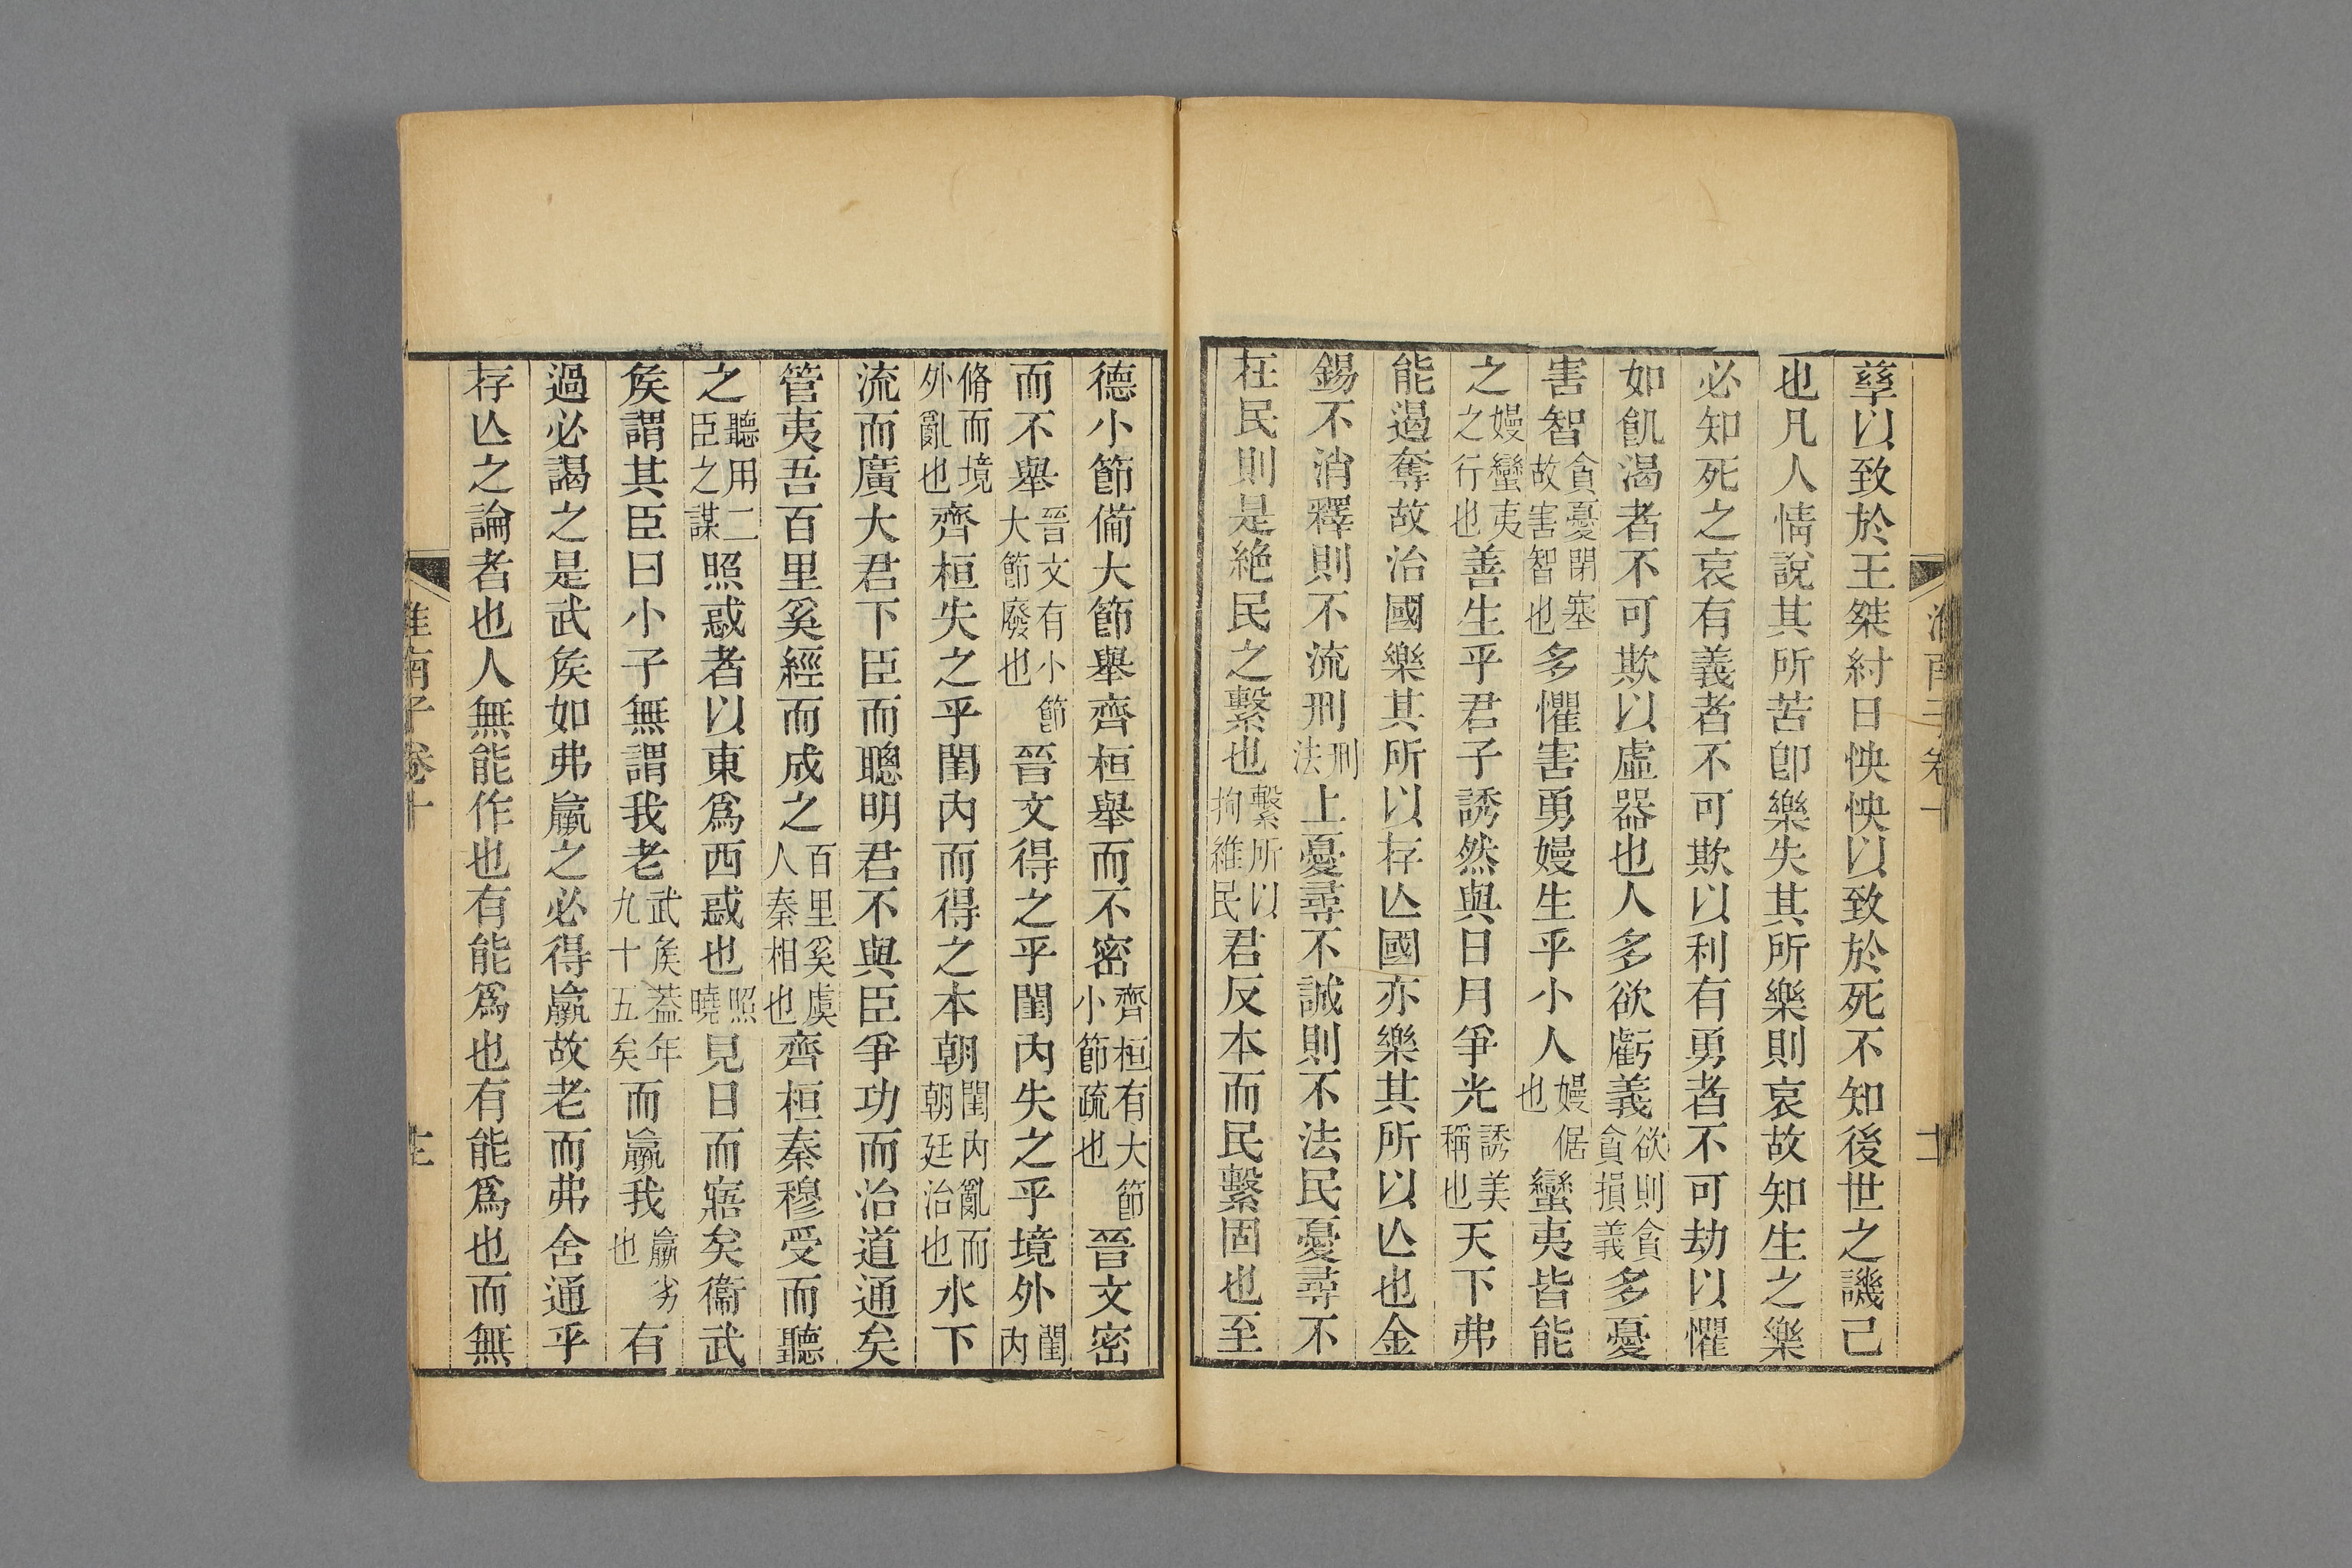 孳以致於王桀紂日怏怏以致於死不知後世之譏己
也凡人情說其所苦卽樂失其所樂則哀故知生之樂
必知死之哀有義者不可欺以利有勇者不可劫以懼
如飢渴者不可欺以虛器也人多欲虧義欲則貪貪損義多憂
害智貪憂閉塞故害智也多懼害勇嫚生乎小人嫚倨也蠻夷皆能
之嫚蠻夷之行也善生乎君子誘然與日月爭光誘美稱也天下弗
能遏奪故治國樂其所以存亾國亦樂其所以亾也金
錫不消釋則不流刑刑法上憂尋不誠則不法民憂尋不
在民則是絶民之繫也繫所以拘維民君反本而民繫固也至
德小節備大節舉齊桓舉而不密齊桓有大節小節疏也晉文密
而不舉晉文有小節大節廢也晉文得之乎閨內失之乎境外閨內
脩而境外亂也齊桓失之乎閨內而得之本朝閨內亂而朝廷治也水下
流而廣大君下臣而聰明君不與臣爭功而治道通矣
管夷吾百里奚經而成之百里奚虞人秦相也齊桓秦穆受而聽
之聽用二臣之謀照惑者以東爲西惑也照曉見日而寤矣衞武
矦謂其臣曰小子無謂我老武矦葢年九十五矣而羸我羸劣也有
過必謁之是武矦如弗羸之必得羸故老而弗舍通乎
存亾之論者也人無能作也有能爲也有能爲也而無
淮南子卷十